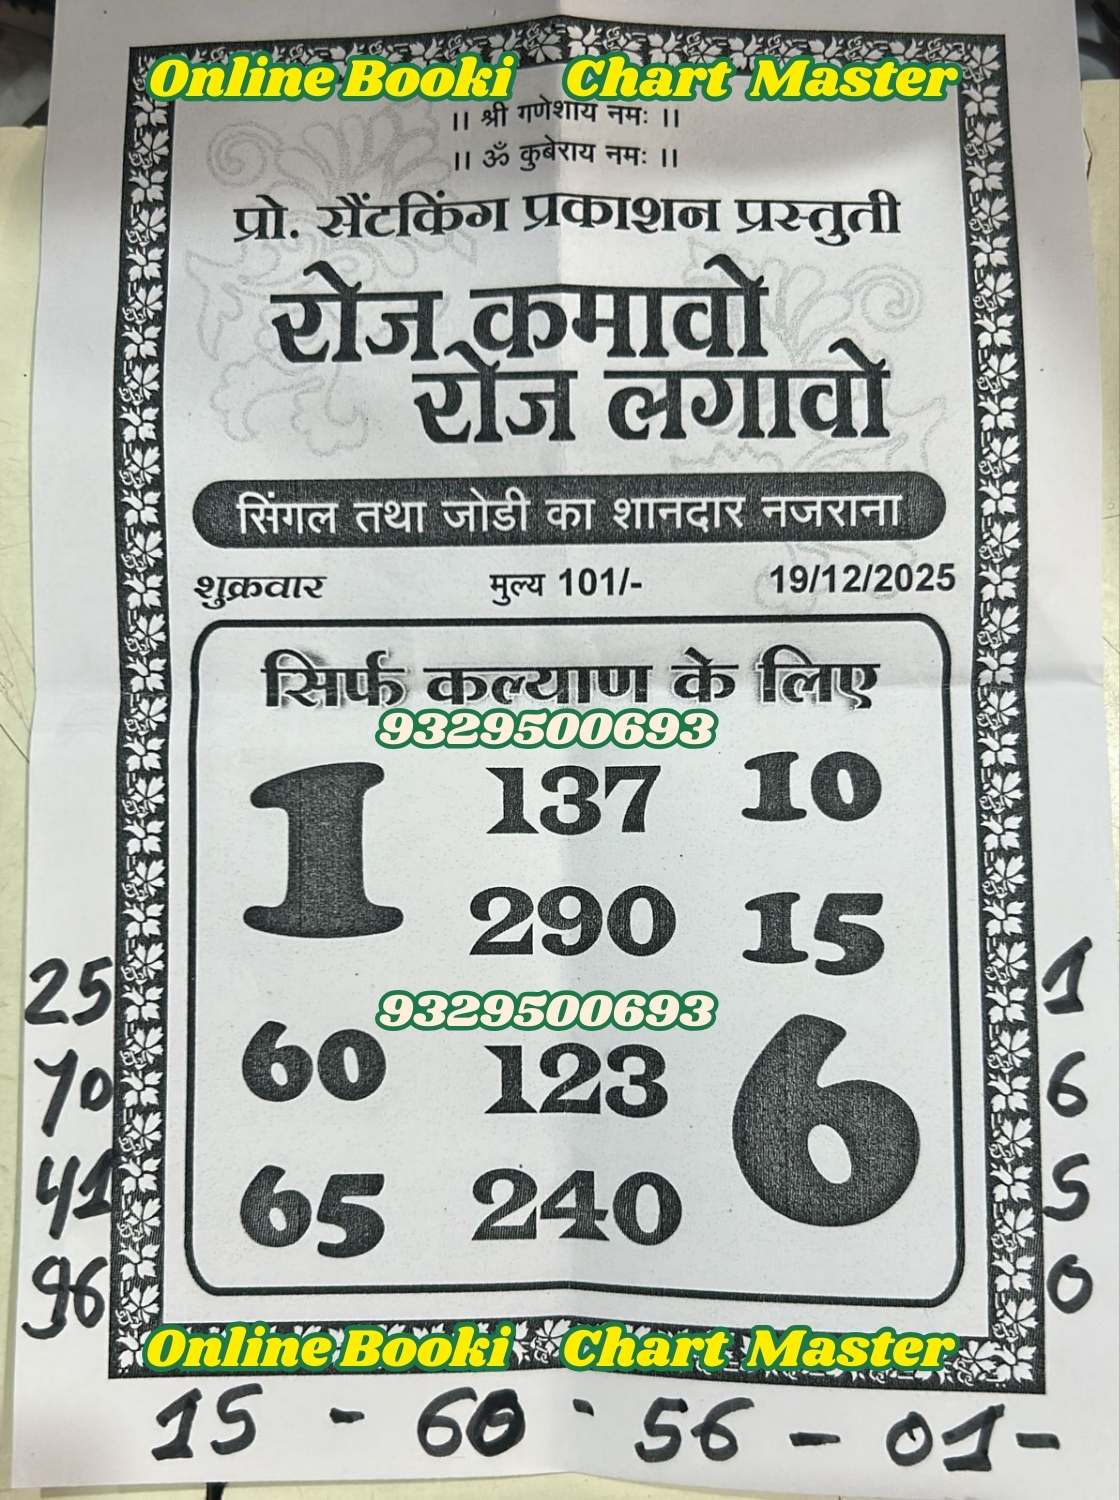 Online Booki Chart Master
|| श्री गणेशाय नमः ||
|| ॐ कुबेराय नमः ||
प्रो. सैंटकिंग प्रकाशन प्रस्तुती
रोज कमावो
रोज लगावो
सिंगल तथा जोडी का शानदार नजराना
शुक्रवार मुल्य 101/- 19/12/2025
सिर्फ कल्याण के लिए
9329500693
1 137 10
290 15
25 1
9329500693
60 123 6
70 6
41 5
65 240
96 0
Online Booki Chart Master
15 - 60 - 56 - 01 -